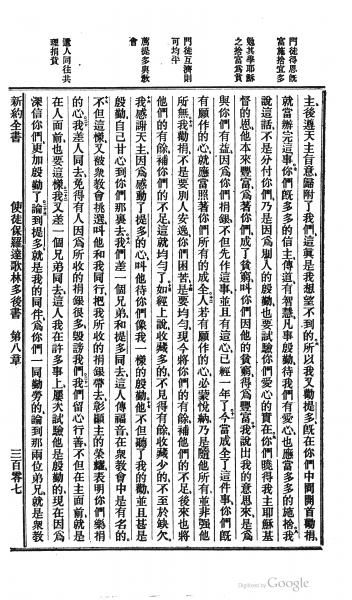 門徒得恩旣
富施捨宜多
勉其學耶穌
之捨富爲貧
門徒互濟則
可均平
薦提多與敎
會
遣人同往共
理捐貲
主後遵天主旨意歸附了我們這眞是我想望不到的所以我又勸提多旣在你們中間開首勸捐
就當辦完這事你們旣多多的信主傳道有智慧凡事殷勤待我們有愛心也應當多多的施捨我
說這話不是分付你們乃是因爲別人的殷勤也要試驗你們愛心的實在你們曉得我主耶穌基
督的恩他本來豐富爲著你們成了貧窮叫你們因他的貧窮得爲豐富我說出我的意思來是爲
與你們有益因爲你們捐銀不但先作這事並且有這心已經一年了今當成全了這件事你們旣
有願作的心就應當照著你們所有的成全人若有願作的心必蒙悅納乃是隨他所有並非强他
所無我勸捐不是要別人安逸你們困苦是要均勻現今將你們的有餘補他們的不足後來也將
他們的有餘補你們的不足這就均勻了如經上說收藏多的不見得有餘收藏少的不至於缺欠
我感謝天主因爲感動了提多的心叫他待你們像我一樣的殷勤他不但聽了我的勸並且甚是
殷勤自己甘心到你們那裏去我們差一個兄弟和提多同去這人傳福音在衆敎會中是有名的
不但這樣又被衆敎會挑選叫他和我同行把我所收的捐銀帶去彰顯主的榮耀表明你們樂捐
的心我差人同去免得有人因爲所收的捐銀很多毀謗我們我們留心行善不但在主面前就是
在人面前也要這樣我又差一個兄弟同去這人我在許多事上屢次試驗他是殷勤的現在因爲
深信你們更加殷勤了論到提多就是我的同伴爲你們一同勤勞的論到那兩位弟兄就是衆敎
新約全書 使徒保羅達歌林多後書 第八章 三百零七
Digitized by Google